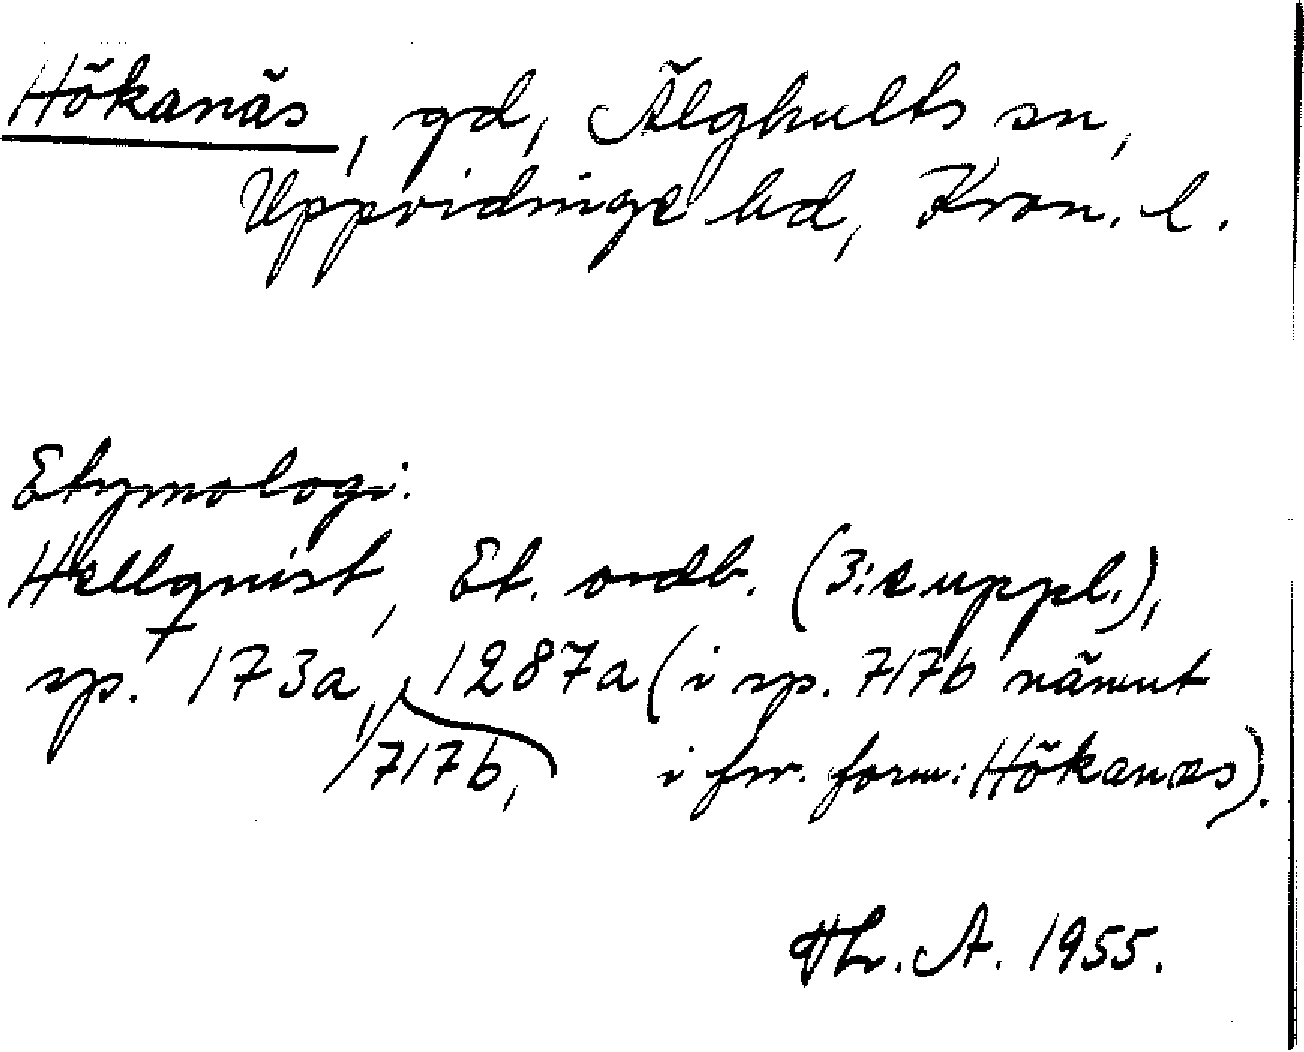 Hökanäs, gd, Älghults sn,
Uppvidinge hd, Kron. l.
Etymologi:
Hellquist, Et. ordb. (3:e uppl.),
sp. 173a, 1287a (i sp. 717b nämnt
717b, i fsv. form: Hökanæs).
Hr. A. 1955.